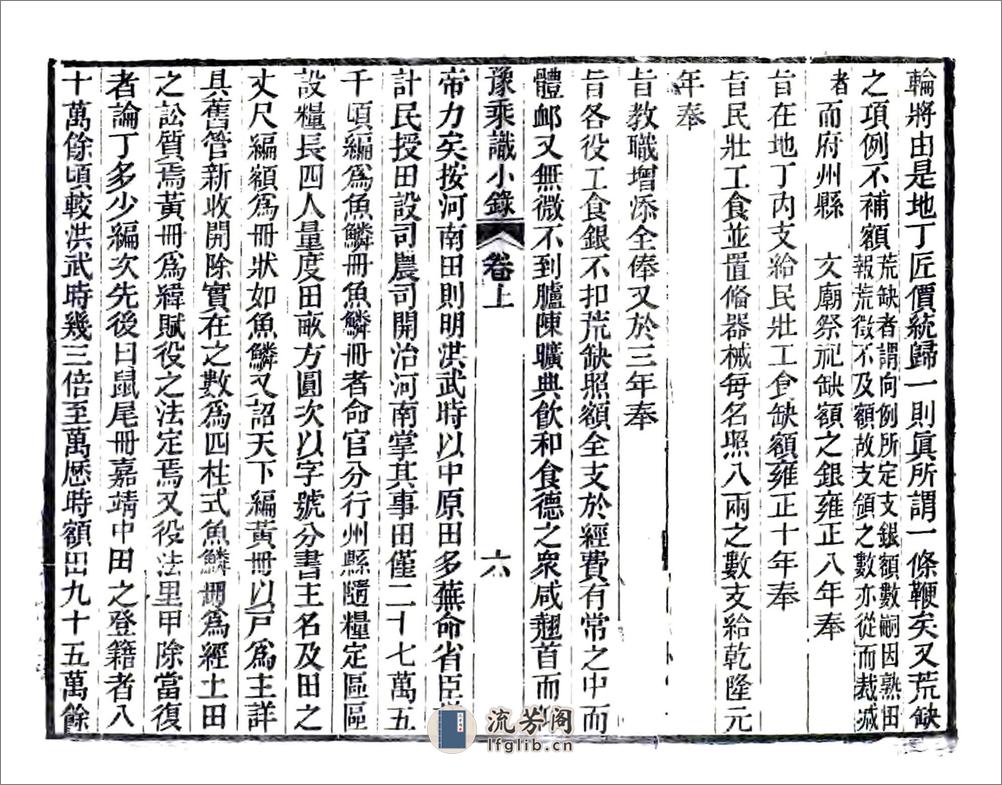 輪將由是地丁匠價統歸一則眞所謂一條鞭矣又荒缺
之項例不補額荒缺者謂向例所定支銀額數嗣因熟田
報荒徵不及額故支領之數亦從而裁減
者 而府州縣 文廟祭祀缺額之銀雍正八年奉
旨在地丁內支給民壯工食缺額雍正十年奉
旨民壯工食並置備器械每名照八兩之數支給乾隆元
年奉
旨教職增添全俸又於三年奉
旨各役工食銀不扣荒缺照額全支於經費有常之中而
體卹又無微不到臚陳曠典飲和食德之衆咸翹首而
豫乘識小錄 卷上 六
帝力矣按河南田則明洪武時以中原田多蕪命省臣
計民授田設司農司開治河南掌其事田僅二十七萬五
千頃編爲魚鱗冊魚鱗冊者命官分行州縣隨糧定區區
設糧長四人量度田畝方圓次以字號分書主名及田之
丈尺編額爲冊狀如魚鱗又詔天下編黃冊以戸爲主詳
具舊管新收開除實在之數爲四柱式魚鱗冊爲經土田
之訟質焉黃冊爲緯賦役之法定焉又役法里甲除當復
者論丁多少編次先後曰鼠尾冊嘉靖中田之登籍者八
十萬餘頃較洪武時幾三倍至萬歷時額田九十五萬餘
流芳阁
lfglib.cn